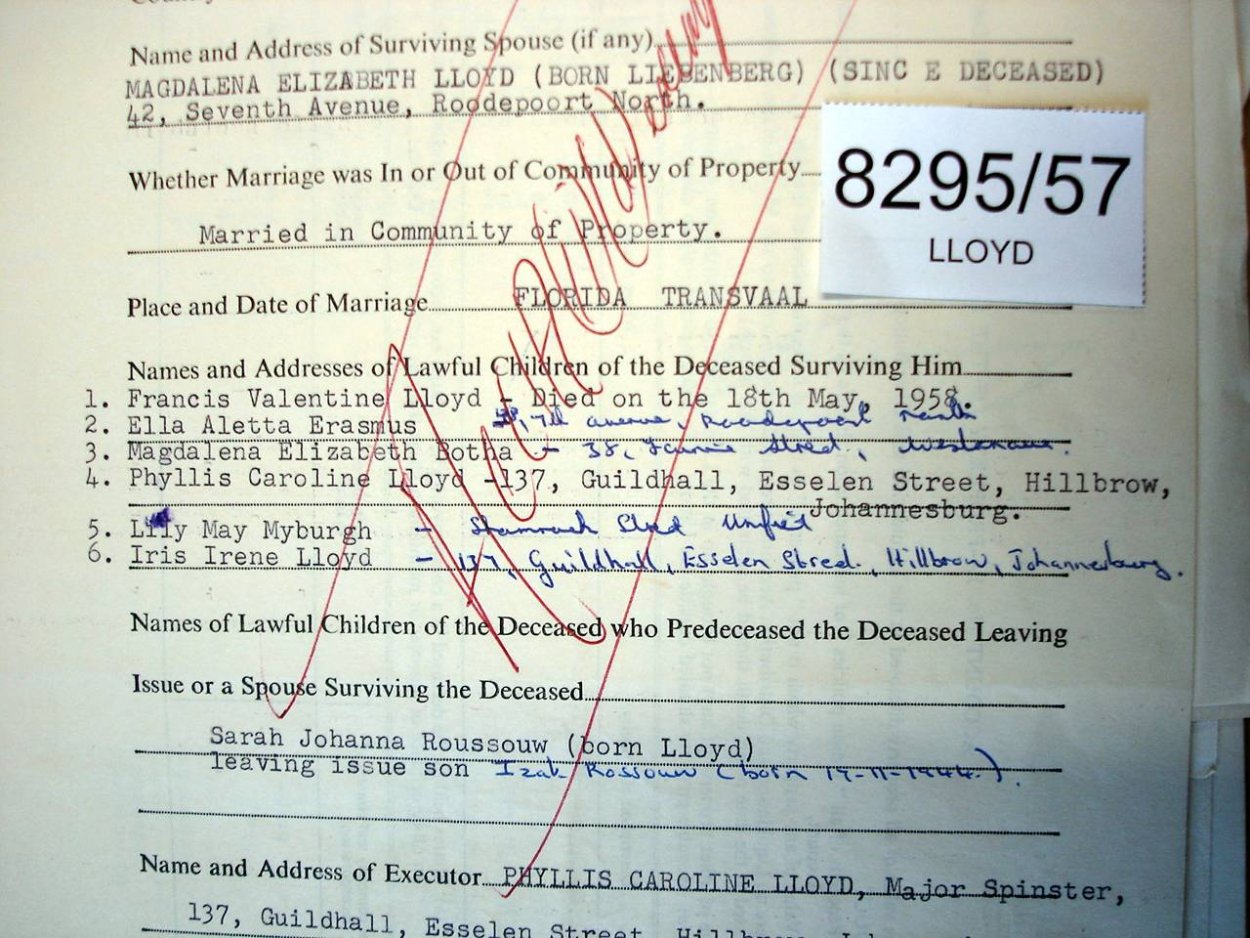 Name and Address of Surviving Spouse (if any)
MAGDALENA ELIZABETH LLOYD (BORN LIEBENBERG) (SINC E DECEASED)
42, Seventh Avenue, Roodepoort North.
Whether Marriage was In or Out of Community of Property
8295/57
LLOYD
Married in Community of Property.
Place and Date of Marriage FLORIDA TRANSVAAL
Names and Addresses of Lawful Children of the Deceased Surviving Him
1. Francis Valentine Lloyd - Died on the 18th May, 1958.
2. Ella Aletta Erasmus 7th avenue, Roodepoort North
3. Magdalena Elizabeth Botha - 38, Street, Westonaria.
4. Phyllis Caroline Lloyd -137, Guildhall, Esselen Street, Hillbrow,
Johannesburg.
5. Lily May Myburgh - Shamrock Street Unified
6. Iris Irene Lloyd - 137, Guildhall, Esselen Street, Hillbrow, Johannesburg.
Names of Lawful Children of the Deceased who Predeceased the Deceased Leaving
Issue or a Spouse Surviving the Deceased
Sarah Johanna Roussouw (born Lloyd)
leaving issue son Izak Rossouw (born 17-11-1944.)
Name and Address of Executor PHYLLIS CAROLINE LLOYD, Major Spinster,
137, Guildhall, Esselen Street, Hillbrow,